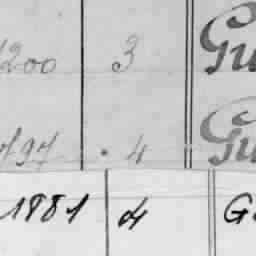 1200 3 Gu
797 . 4 Gu
1881 4 G